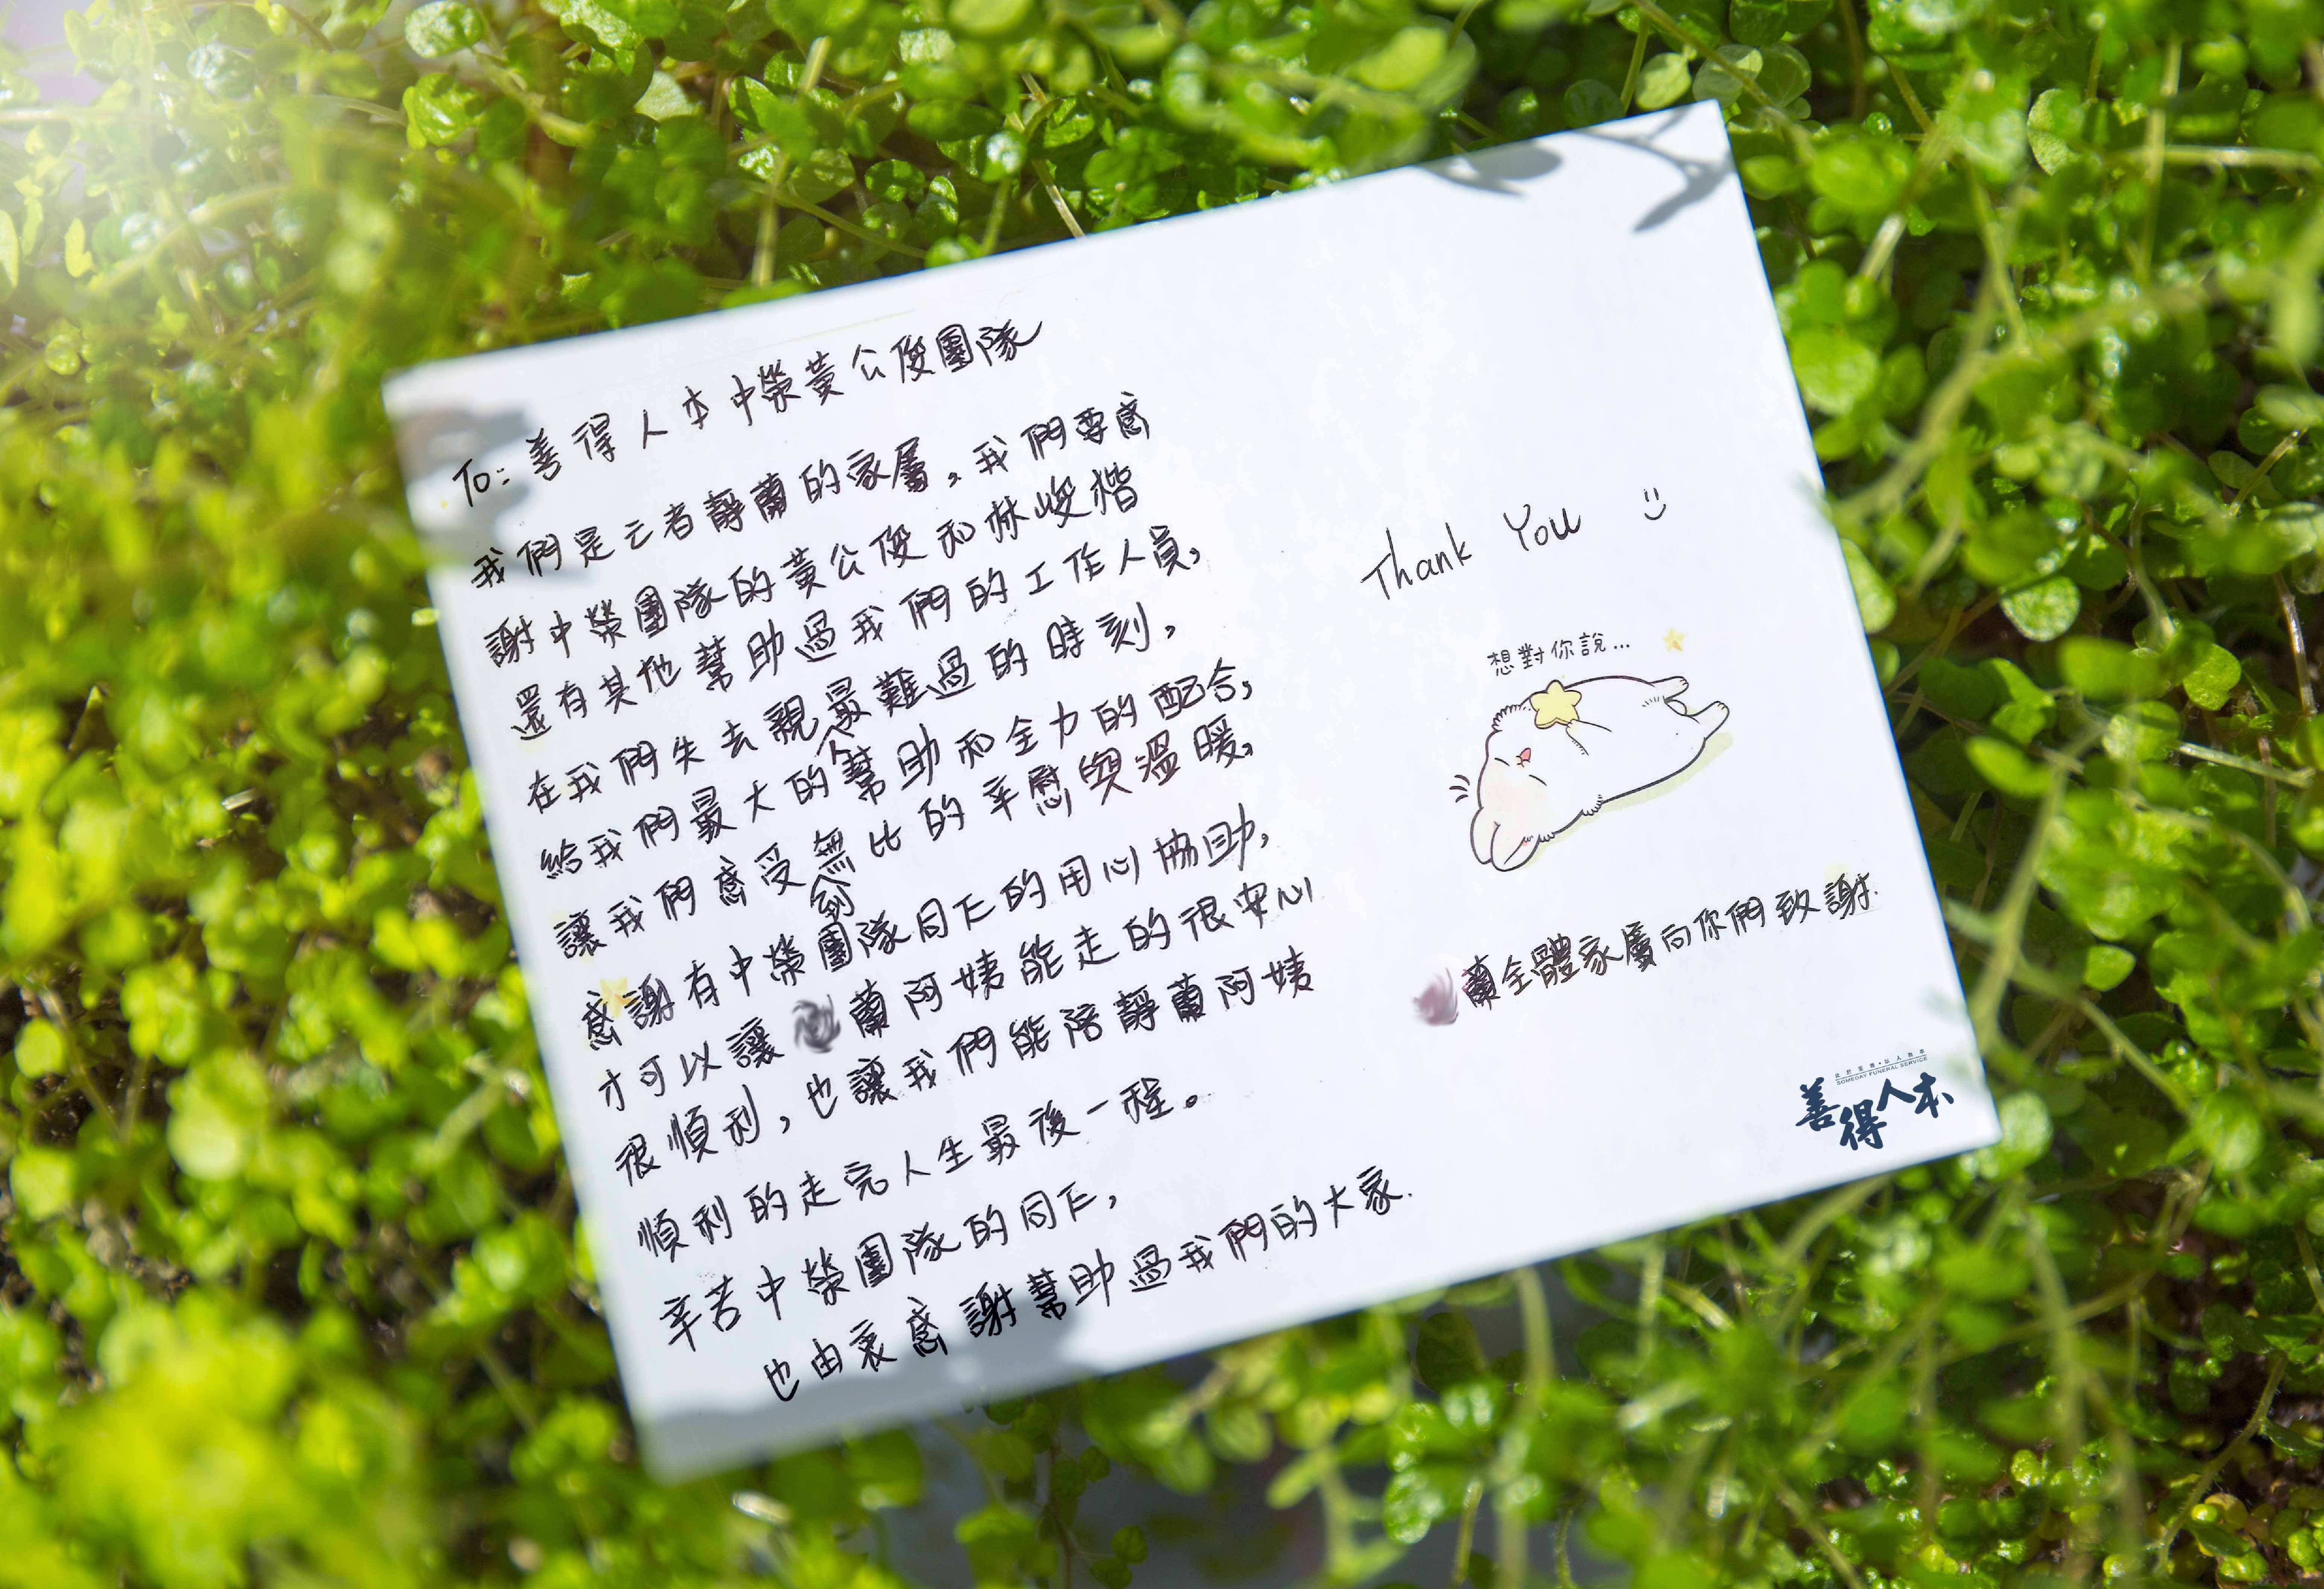 To: 善得人本中榮黃公俊團隊
我們是亡者靜蘭的家屬，我們要感
謝中榮團隊的黃公俊和林峻楷
還有其他幫助過我們的工作人員，
在我們失去親人最難過的時刻，
給我們最大的幫助和全力的配合，
讓我們感受到無比的辛慰與溫暖，
感謝有中榮團隊同仁的用心協助，
才可以讓 蘭阿姨能走的很安心
很順利，也讓我們能陪靜蘭阿姨
順利的走完人生最後一程。
辛苦中榮團隊的同仁，
也由衷感謝幫助過我們的大家.
Thank You
想對你說...
蘭全體家屬向你們致謝.
SOMEDAY FUNERAL SERVICE
善得人本